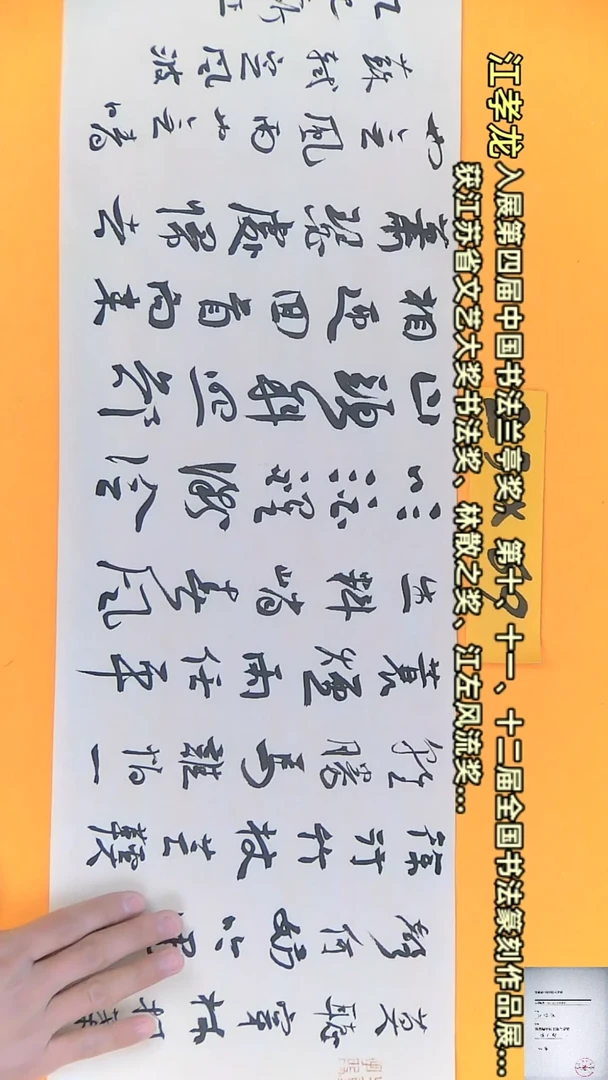 江孝龙 入展第四届中国书法兰亭奖，第十、十一、十二届全国书法篆刻作品展...
获江苏省文艺大奖书法奖、林散之奖、江左风流奖...
莫聽穿林打葉
聲何妨吟
徐行竹杖芒鞵
輕勝馬誰怕一
蓑煙雨任平
生料峭春風
吹酒醒微冷
山頭斜照卻
相迎回首向来
蕭瑟處歸去
也无風雨也无晴
蘇軾定風波